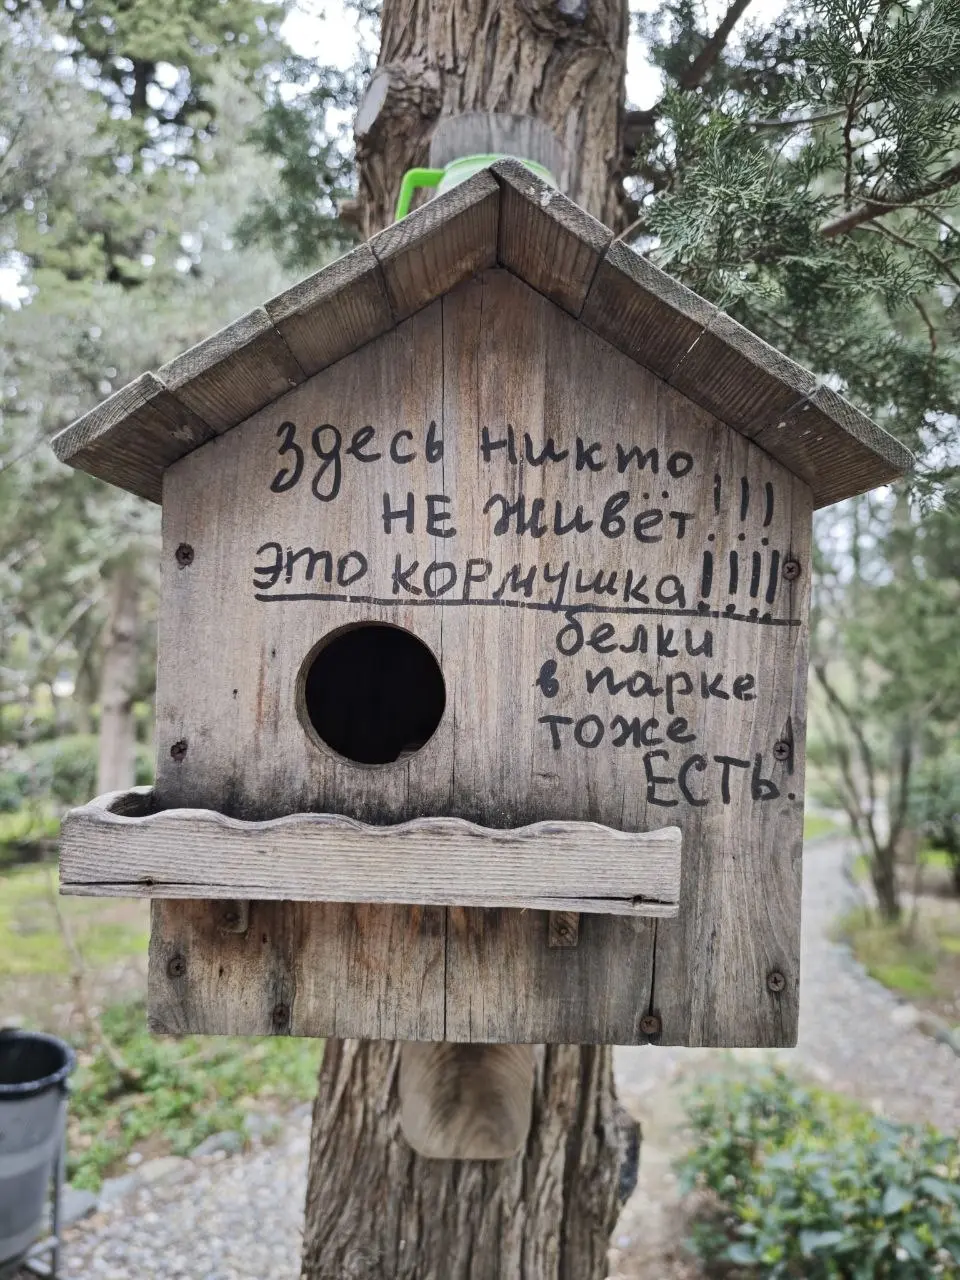 Здесь никто
НЕ живёт!!!
это кормушка!!!!
белки
в парке
тоже
ЕСТЬ!